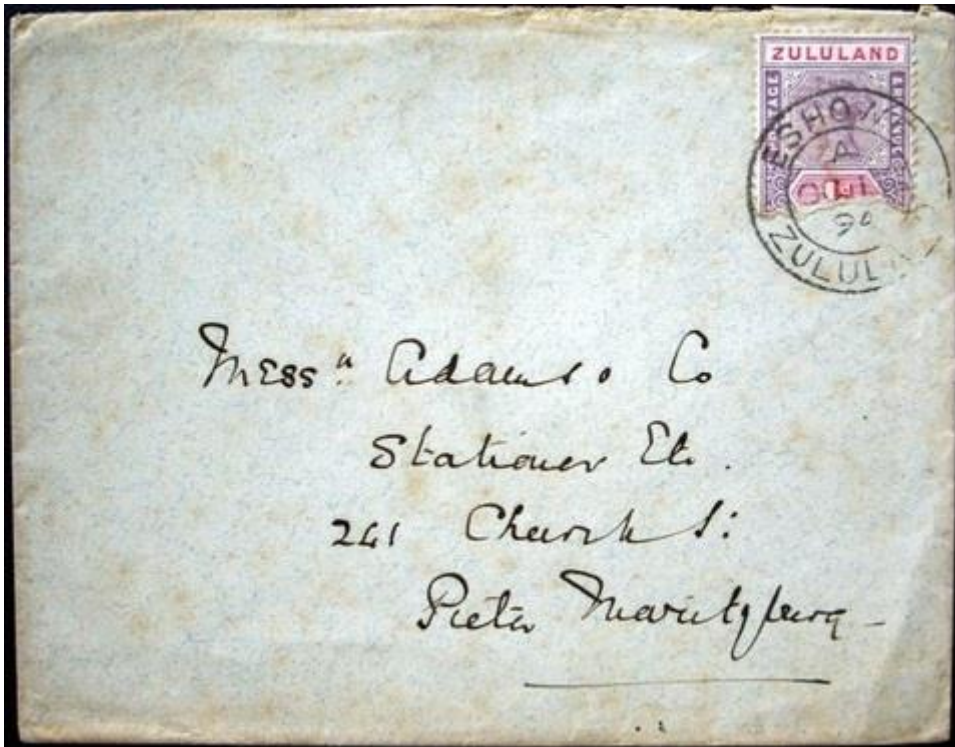 ZULULAND
REVENUE
ESHOW
A
OC 11
94
ZULUL
Mess rs. Adams & Co
Stationer Etc.
241 Church St:
Pieter Maritzburg